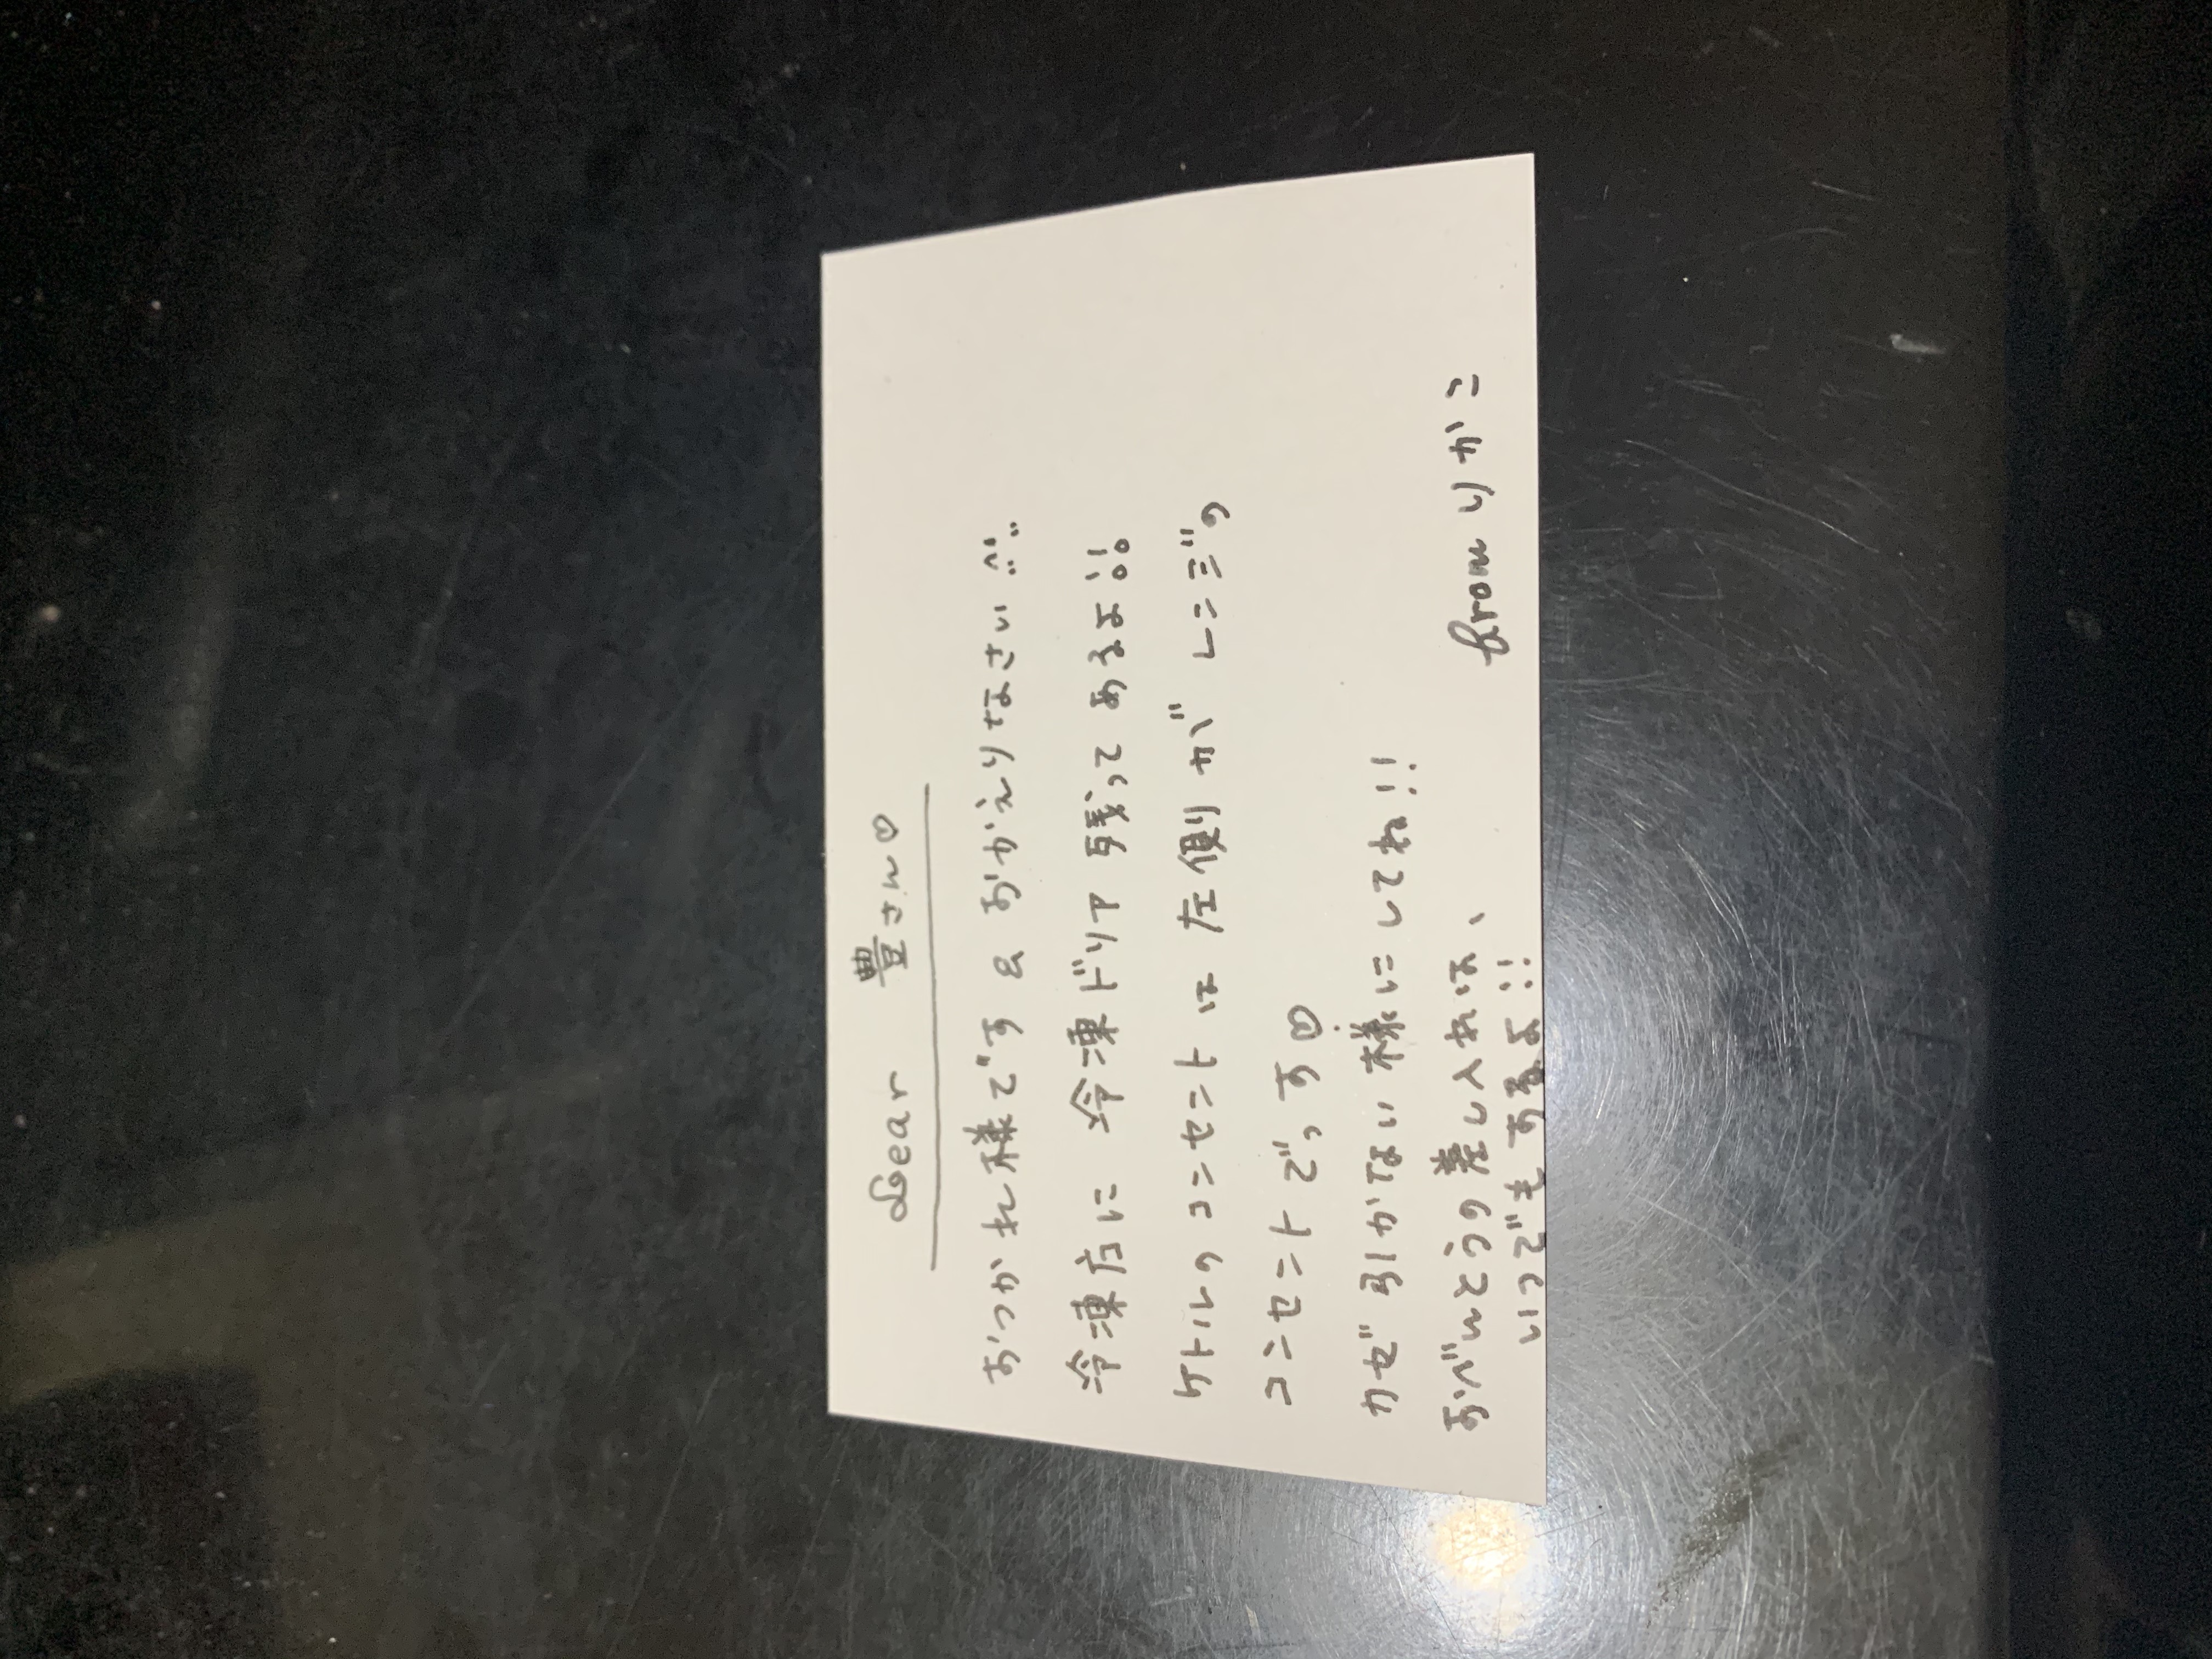 Dear 豊さん♡
おつかれ様です & おかえりなさい^^
冷凍庫に 冷凍ドリア 残ってあるよ!!
ケトルのコンセントは 左側が レンジの
コンセントでっす♡
カゼ引かない様にしてね!!
おべんとうの差し入れは、
いつでもするよ!!
from りかこ